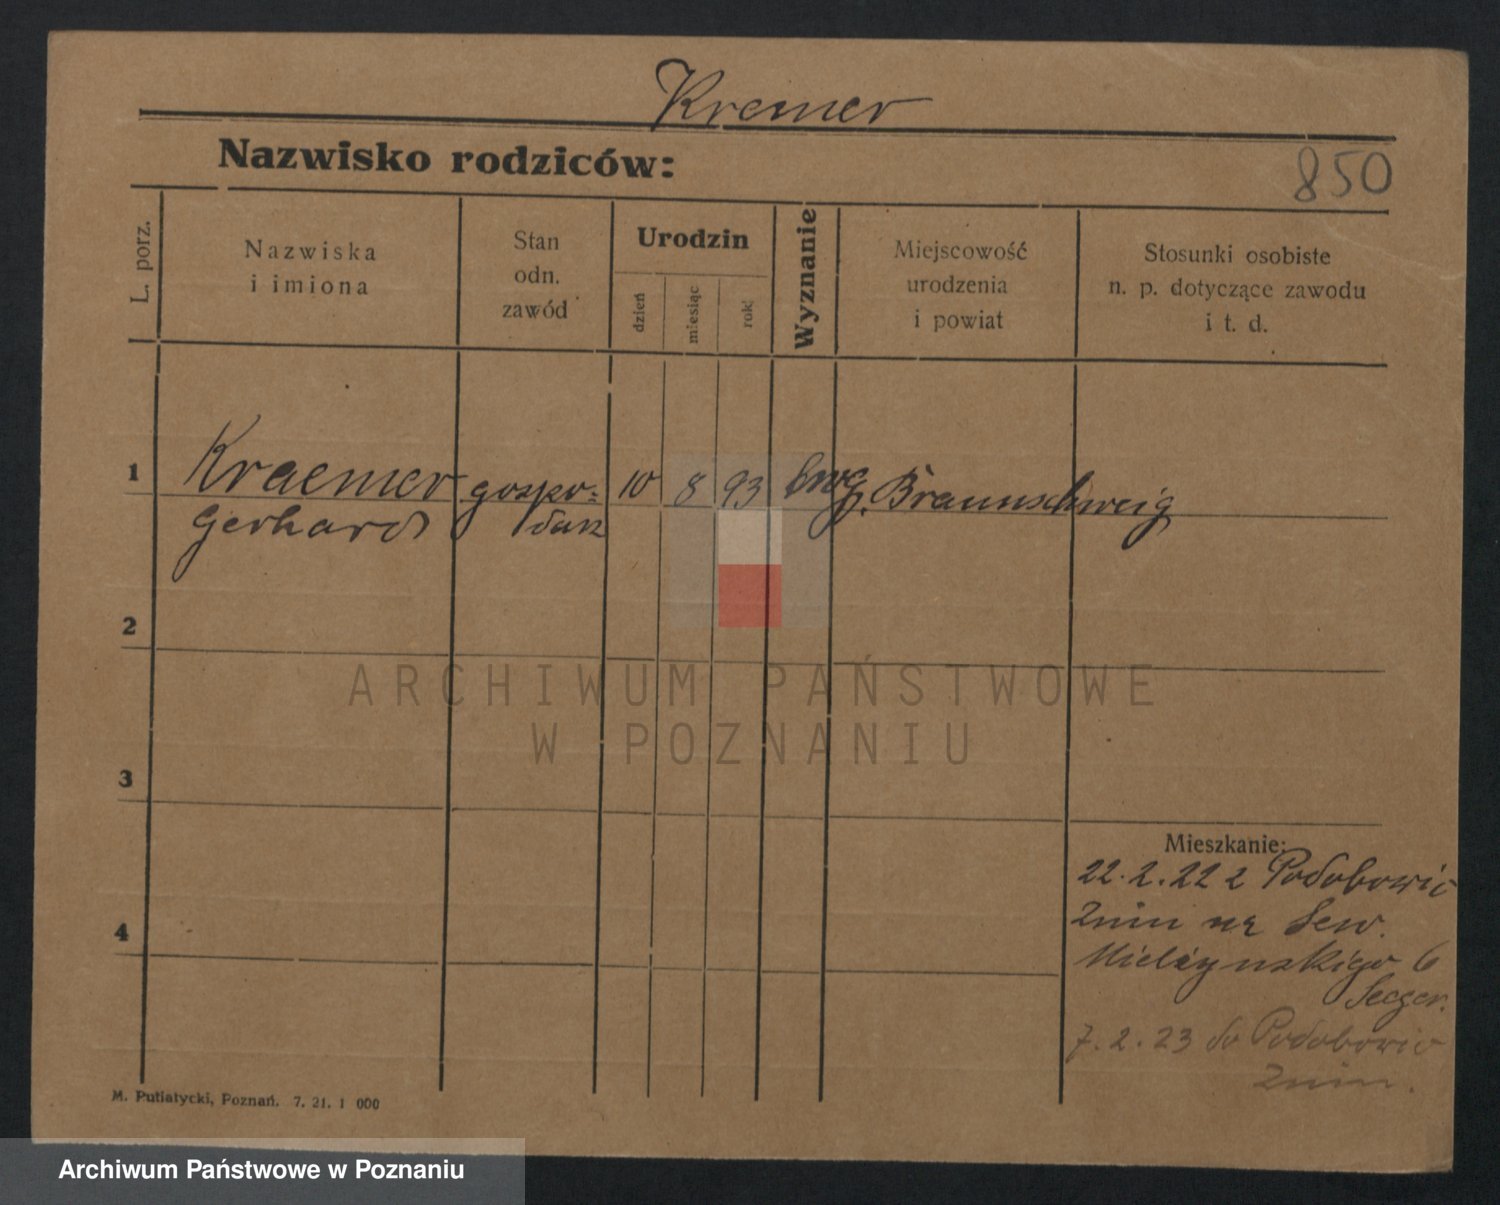 Kremer
Nazwisko rodziców:
850
L. porz.
Nazwiska
i imiona
Stan
odn.
zawód
Urodzin
dzień
miesiąc
rok
Wyznanie
Miejscowość
urodzenia
i powiat
Stosunki osobiste
n. p. dotyczące zawodu
i t. d.
1
Kraemer gospo- 10 8 93 Braunschweig
Gerhard darz
2
ARCHIWUM PAŃSTWOWE
W POZNANIU
3
Mieszkanie:
22.2.22 z Podobowic
Żnin na Sew.
4
Mielżynskiego 6
7.2.23 do Podobowic
Żnin.
M. Putiatycki, Poznań. 7. 21. 1 000
Archiwum Państwowe w Poznaniu